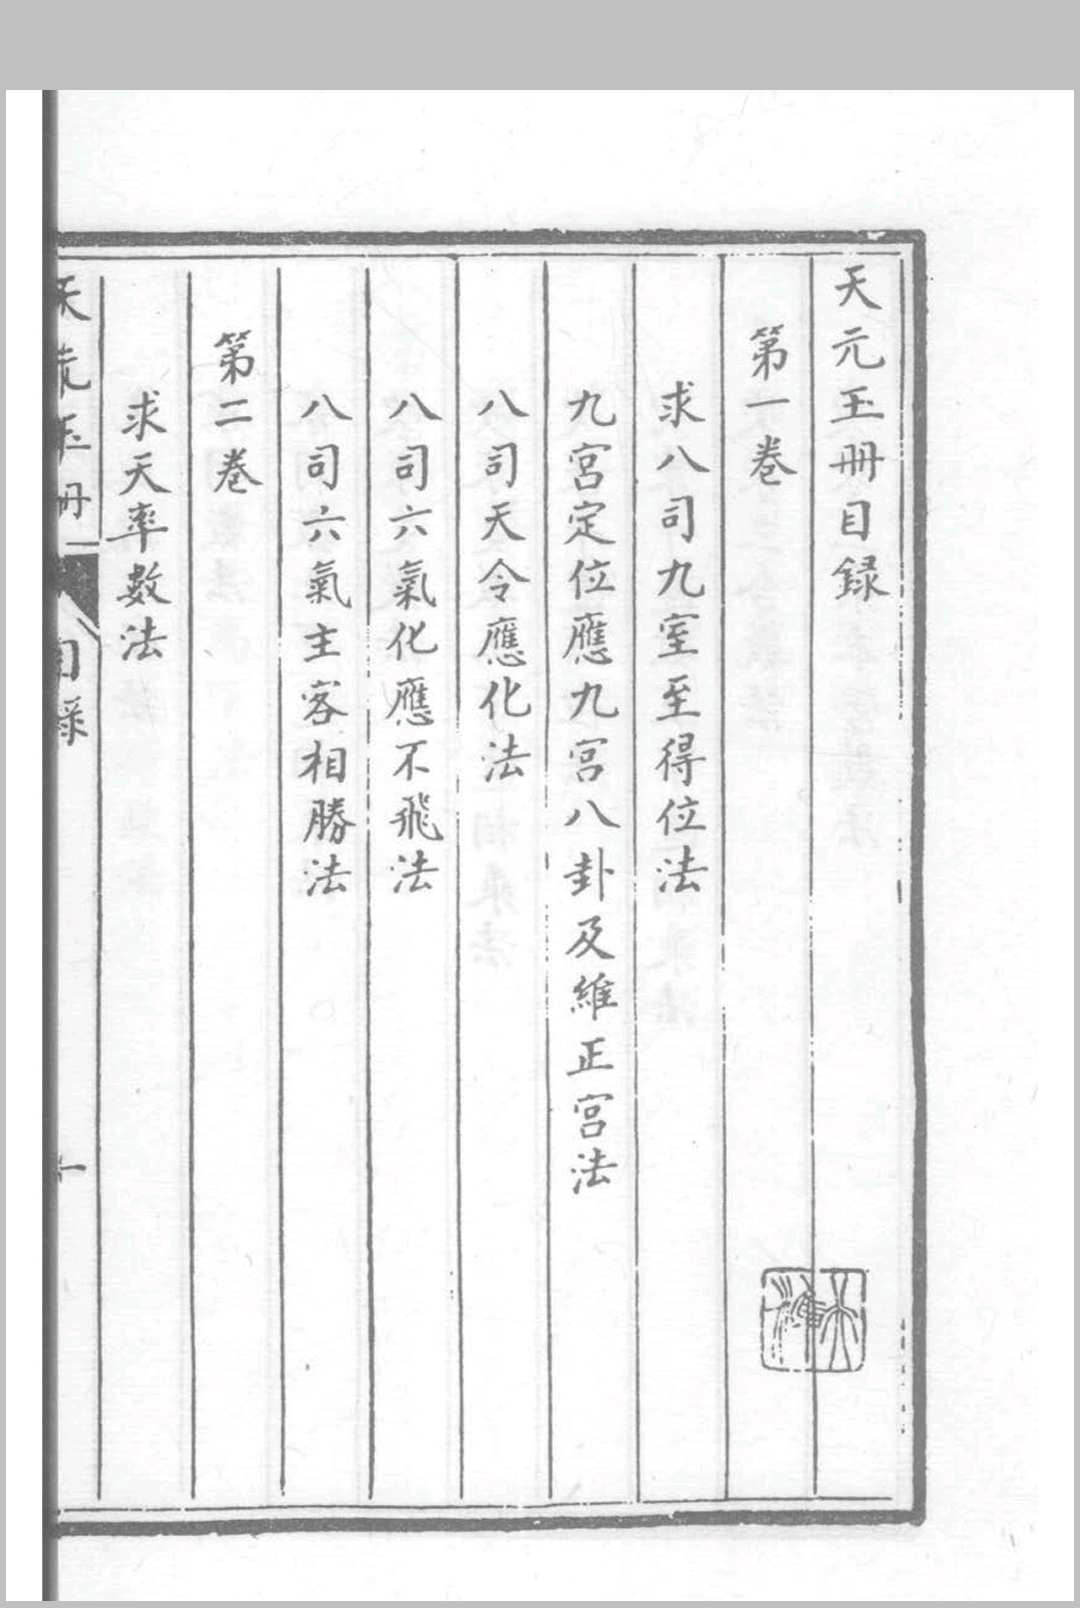 天元玉冊目録
第一卷
求八司九室至得位法
九宮定位應九宮八卦及維正宮法
八司天令應化法
八司六氣化應不飛法
八司六氣主客相勝法
第二卷
求天率數法
天元玉冊
目錄
一